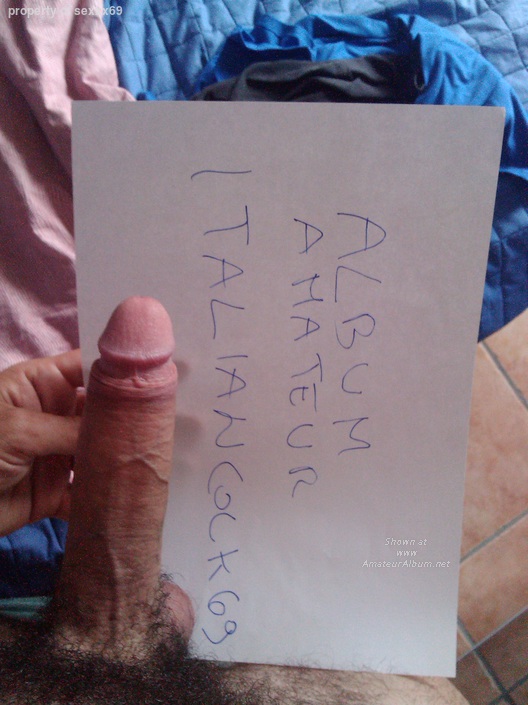 property of sexxx69
ALBUM
AMATEUR
ITALIANCOCK69
Shown at
www
AmateurAlbum.net